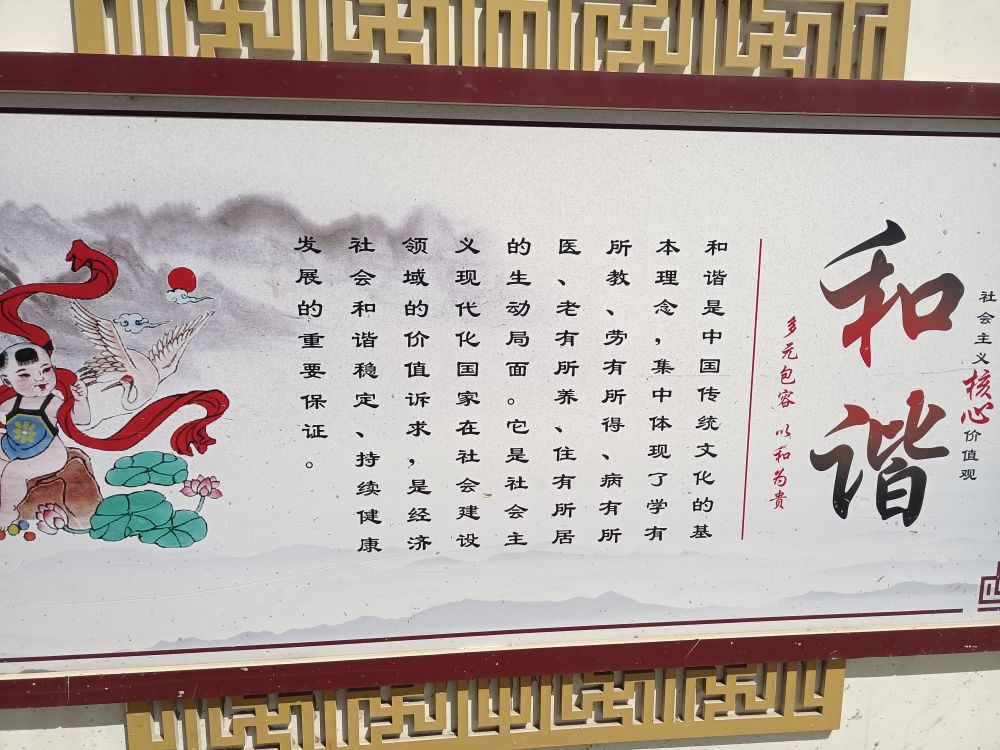 社会主义核心价值观
和谐
多元包容 以和为贵
和谐是中国传统文化的基
本理念，集中体现了学有
所教、劳有所得、病有所
医、老有所养、住有所居
的生动局面。它是社会主
义现代化国家在社会建设
领域的价值诉求，是经济
社会和谐稳定、持续健康
发展的重要保证。